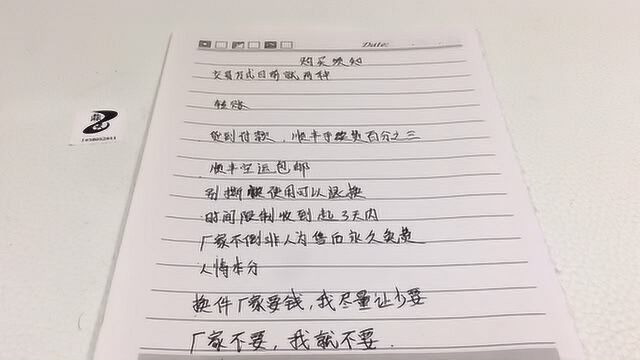 Date:
购买须知
交易方式目前就两种
转账
货到付款，顺丰手续费百分之三
顺丰空运包邮
别撕 使用可以退换
时间限制收到起3天内
厂家不倒非人为售后永久免费
人情本分
换件厂家要钱，我尽量让少要
厂家不要，我就不要.